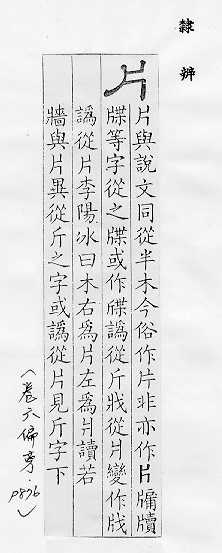 隸辨
片
片與說文同從半木今俗作片非亦作片牖牘
牒等字從之牒或作譌從斤戕從片變作
譌從片李陽冰曰木右爲片左爲爿讀若
牆與片異從斤之字或譌從片見斤字下
(卷六偏旁.